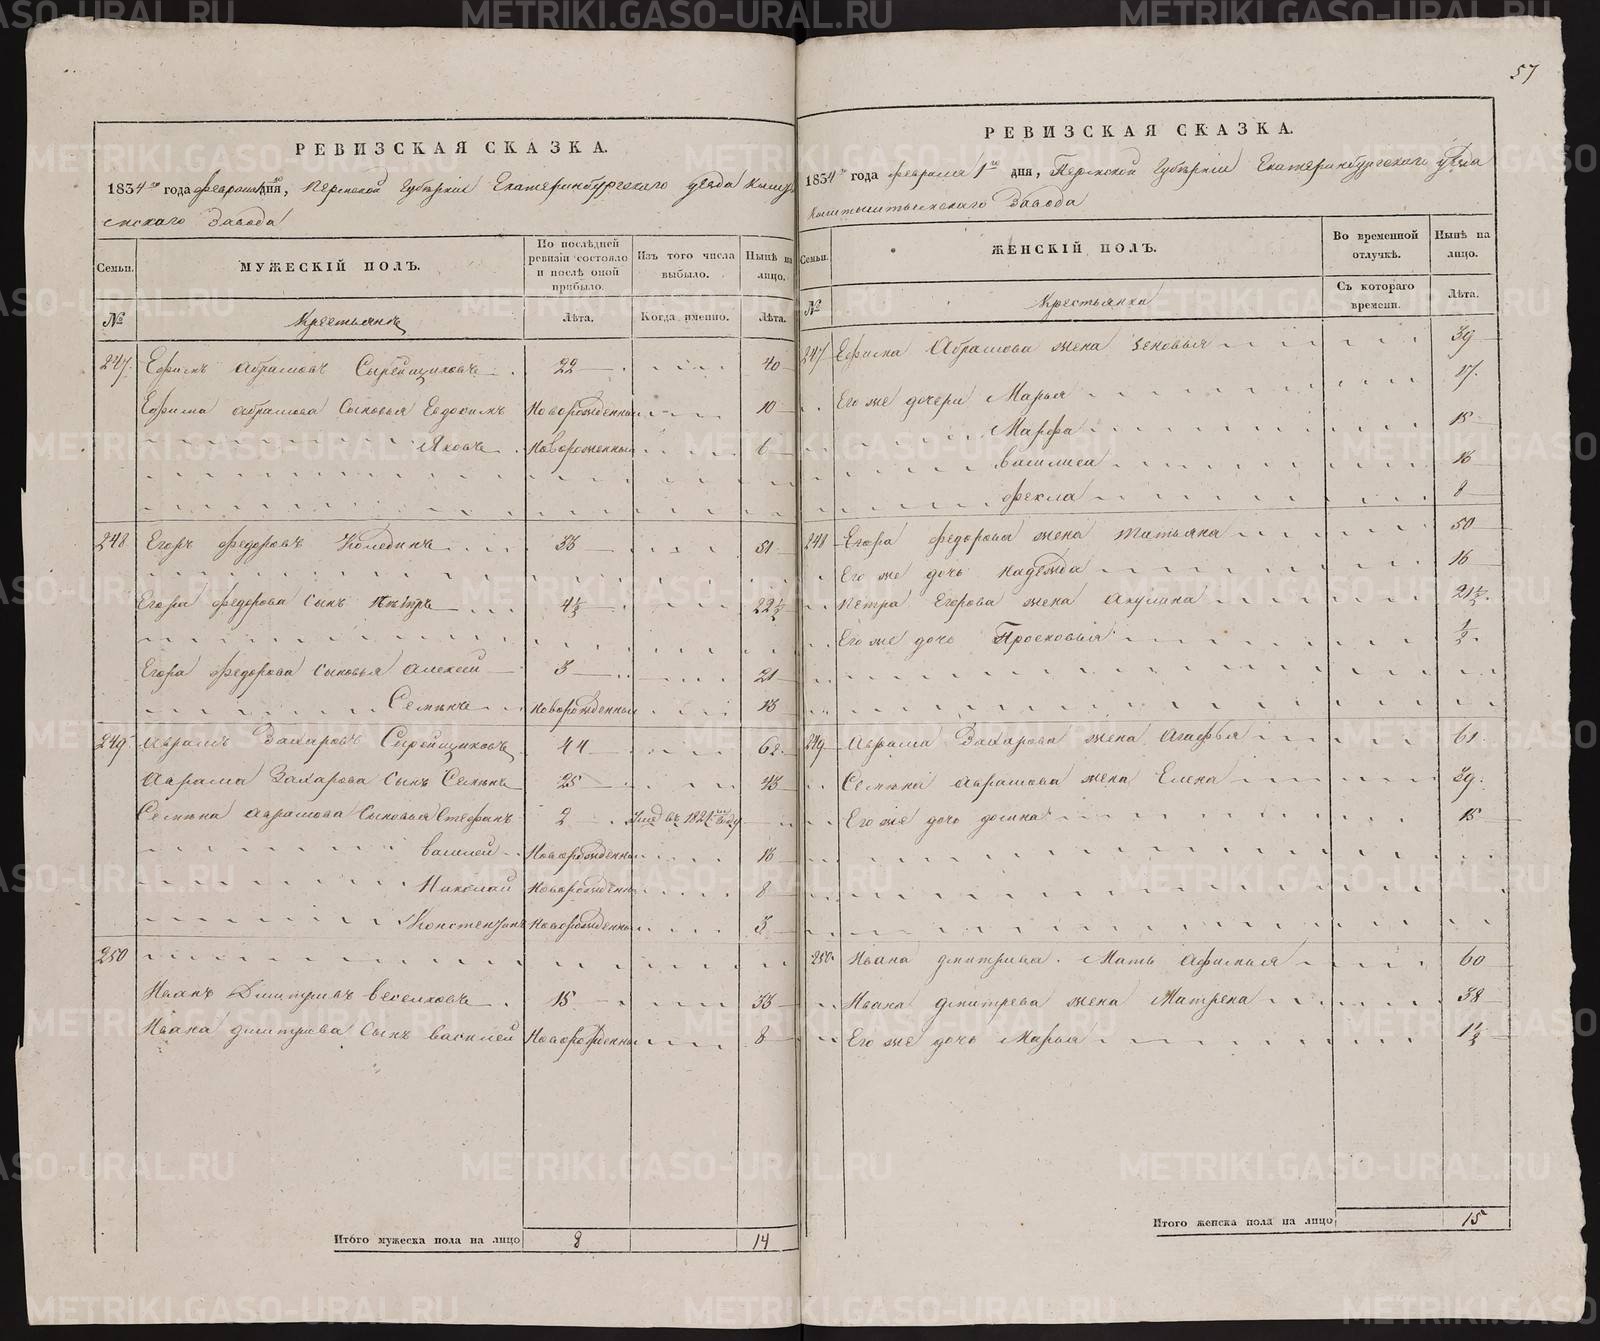 57
РЕВИЗСКАЯ СКАЗКА.
1834 года февраля дня, Пермской Губернии Екатеринбургскаго уезда
Завода
Семьи.
МУЖЕСКІЙ ПОЛЪ.
По послѣдней ревизіи состояло и послѣ оной прибыло.
Изъ того числа выбыло.
Нынѣ на лицо.
№
Крестьянъ
Лѣта.
Когда именно.
Лѣта.
247. Ефимъ Абрамовъ Сырейщиковъ 22 40
Ефима Абрамова Сыновья Евдокимъ Новорожденный 10
Яковъ Новорожденный 6
248 Егоръ Федоровъ Колединъ 33 51
Егора Федорова Сынъ Петръ 4½ 22½
Егора Федорова Сыновья Алексей 3 21
Семенъ Новорожденный 13
249 Аврамъ Захаровъ Сырейщиковъ 44 62
Аврама Захарова Сынъ Семенъ 25 43
Семена Аврамова Сыновья Стефанъ 2
Василей Новорожденный 13
Николай Новорожденный 8
Константинъ Новорожденный 3
250
Иванъ Дмитриевъ Веселковъ 15 33
Ивана Дмитриева Сынъ Василей Новорожденный 8
Итого мужеска пола на лицо 8 14
РЕВИЗСКАЯ СКАЗКА.
1834 года февраля 1 дня, Пермской Губерніи Екатеринбургскаго уезда
Кыштымскаго Завода
Семьи.
ЖЕНСКІЙ ПОЛЪ.
Во временной отлучкѣ.
Нынѣ на лицо.
№
Крестьянка
Съ котораго времени.
Лѣта.
247 Ефима Абрамова жена Зеновья 39
Его же дочери Марья 17.
Марфа 15
Василиса 13
Фекла 8
248 Егора Федорова жена Татьяна 50
Его же дочь Надежда 16
Петра Егорова жена Акулина 21½
Его же дочь Просковья ½
249 Аврама Захарова жена Агафья 61
Семена Аврамова жена Елена 39.
Его же дочь Домна 15
250. Ивана Дмитрива Мать Афимья 60
Ивана Дмитрева жена Матрена 38
Его же дочь Марья 1½
Итого женска пола на лицо 15
METRIKI.GASO-URAL.RU